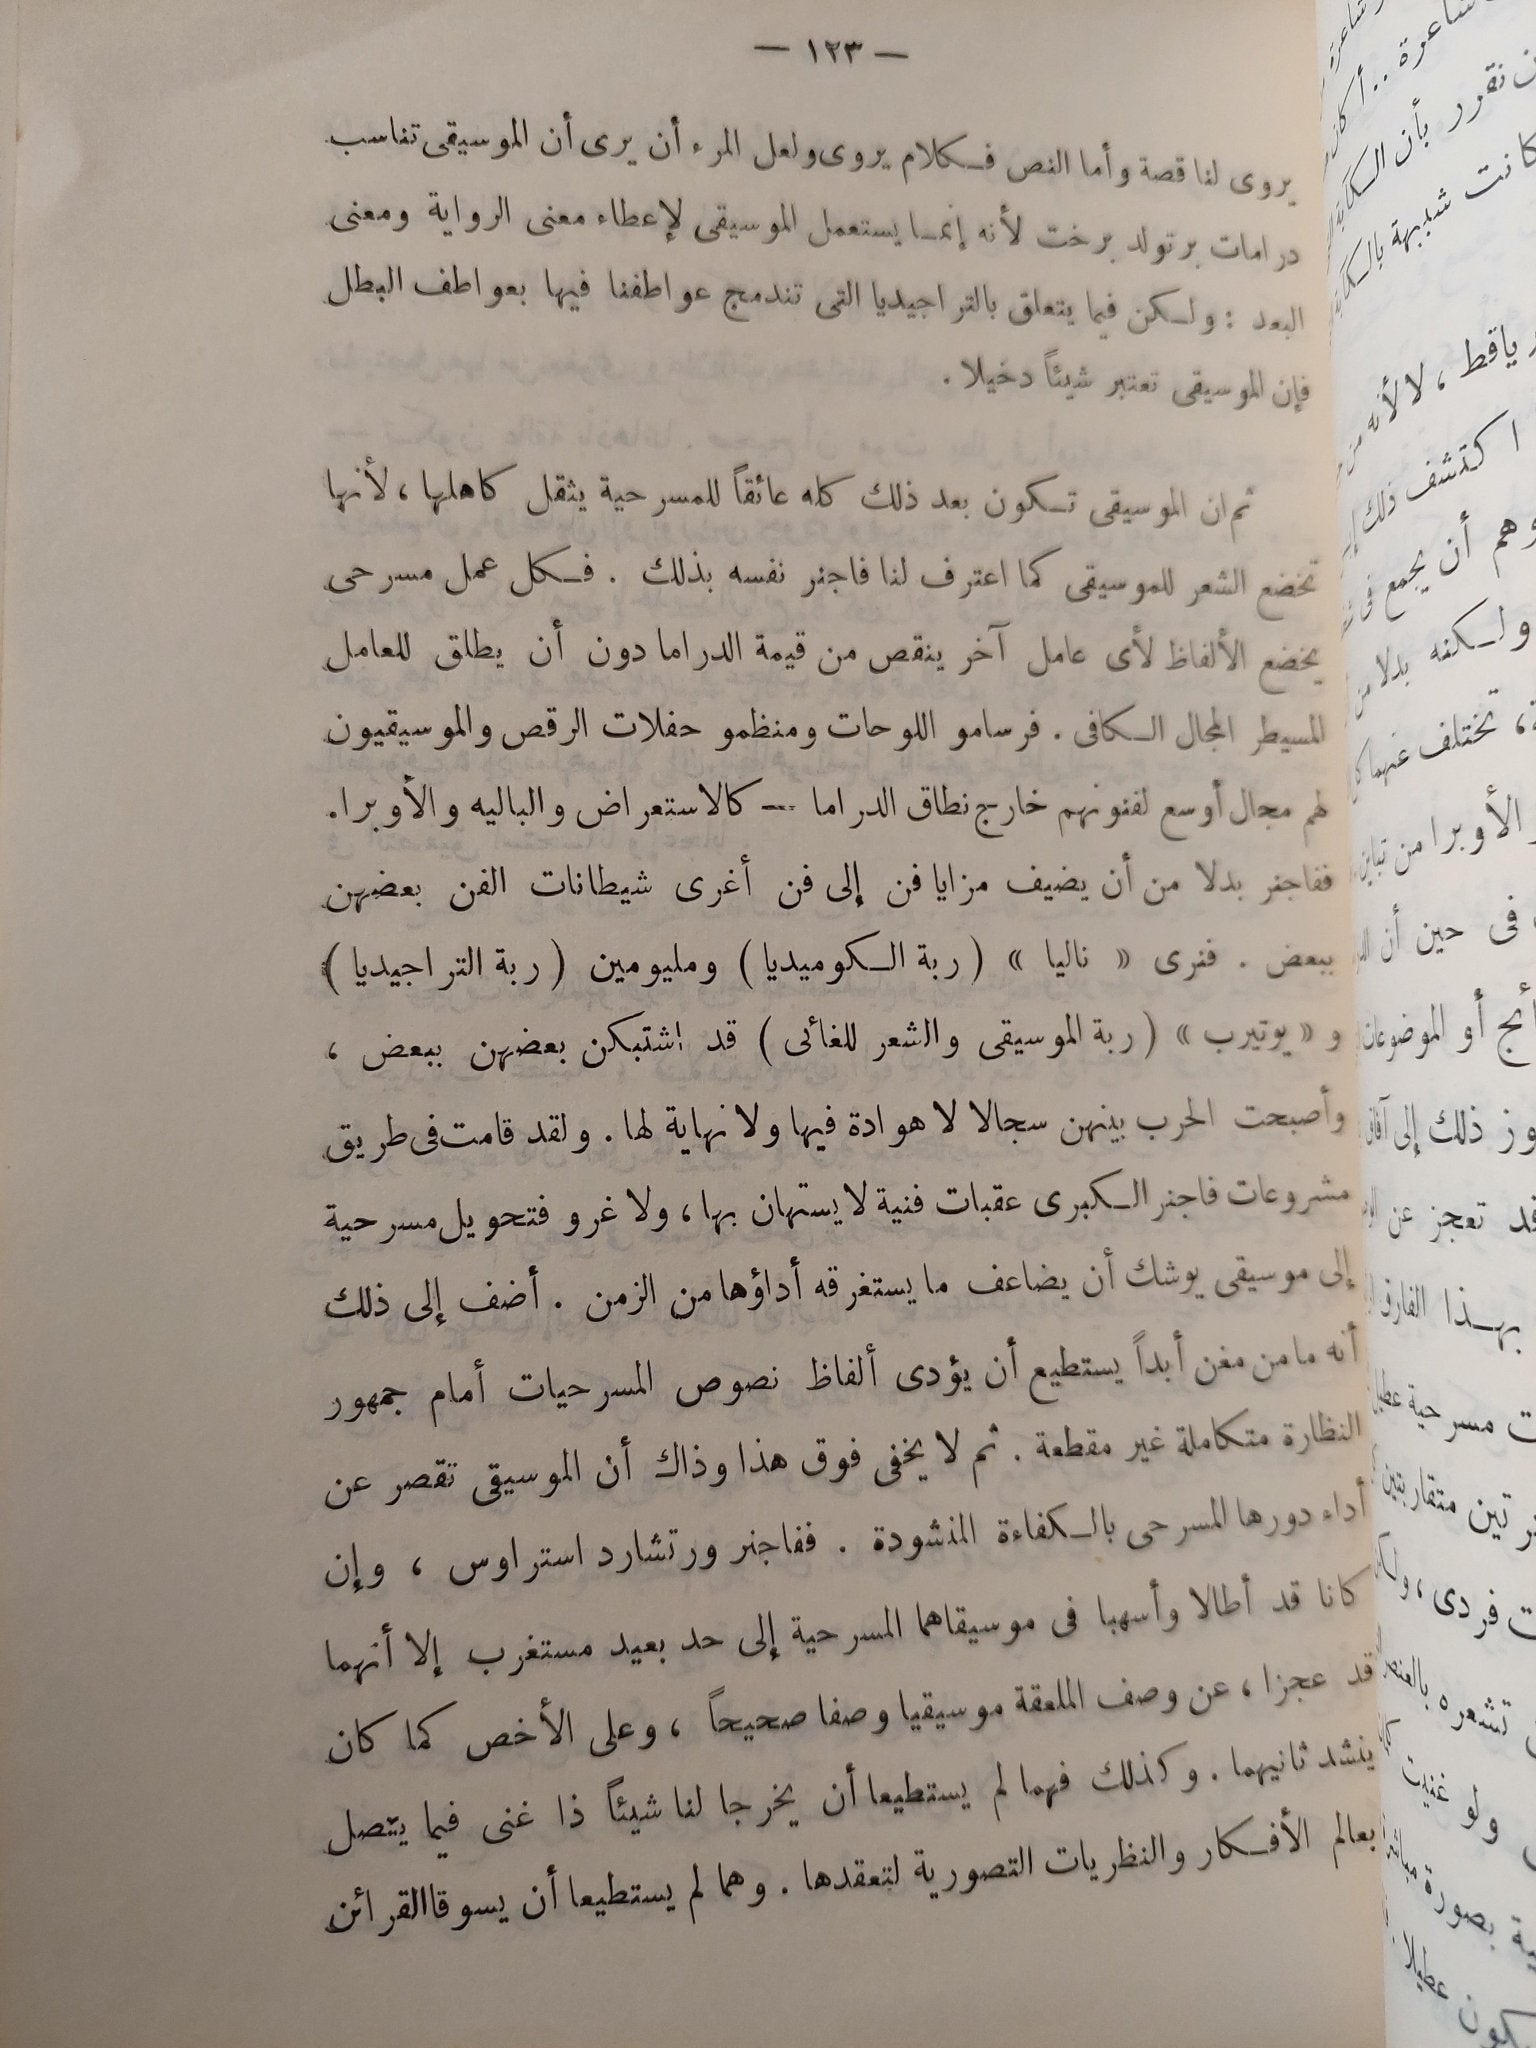 — ١٢٣ —
يروى لنا قصة وأما النص فكلام يروى ولعل المرء أن يرى أن الموسيقى تناسب
درامات برتولد برخت لأنه إنما يستعمل الموسيقى لإعطاء معنى الرواية ومعنى
البعد : ولكن فيما يتعلق بالتراجيديا التى تندمج عواطفنا فيها بعواطف البطل
فإن الموسيقى تعتبر شيئاً دخيلا .
ثم ان الموسيقى تكون بعد ذلك كله عائقاً للمسرحية يثقل كاهلها ، لأنها
تخضع الشعر للموسيقى كما اعترف لنا فاجنر نفسه بذلك . فكل عمل مسرحى
يخضع الألفاظ لأى عامل آخر ينقص من قيمة الدراما دون أن يطلق للعامل
المسيطر المجال الكافى . فرسامو اللوحات ومنظمو حفلات الرقص والموسيقيون
لهم مجال أوسع لفنونهم خارج نطاق الدراما — كالاستعراض والباليه والأوبرا .
ففاجنر بدلا من أن يضيف مزايا فن إلى فن أغرى شيطانات الفن بعضهن
ببعض . فنرى « ناليا » ( ربة الكوميديا ) ومليومين ( ربة التراجيديا )
و « يوتيرب » ( ربة الموسيقى والشعر للغائى ) قد اشتبكن بعضهن ببعض ،
وأصبحت الحرب بينهن سجالا لا هوادة فيها ولا نهاية لها . ولقد قامت فى طريق
مشروعات فاجنر الكبرى عقبات فنية لا يستهان بها ، ولا غرو فتحويل مسرحية
إلى موسيقى يوشك أن يضاعف ما يستغرقه أداؤها من الزمن . أضف إلى ذلك
أنه ما من مغن أبداً يستطيع أن يؤدى ألفاظ نصوص المسرحيات أمام جمهور
النظارة متكاملة غير مقطعة . ثم لا يخفى فوق هذا وذاك أن الموسيقى تقصر عن
أداء دورها المسرحى بالكفاءة المنشودة . ففاجنر ورتشارد استراوس ، وإن
كانا قد أطالا وأسهبا فى موسيقاهما المسرحية إلى حد بعيد مستغرب إلا أنهما
قد عجزا ، عن وصف الملعقة موسيقيا وصفا صحيحاً ، وعلى الأخص كما كان
ينشد ثانيهما . وكذلك فهما لم يستطيعا أن يخرجا لنا شيئاً ذا غنى فيما يتصل
بعالم الأفكار والنظريات التصورية لتعقدها . وهما لم يستطيعا أن يسوقا القرائن